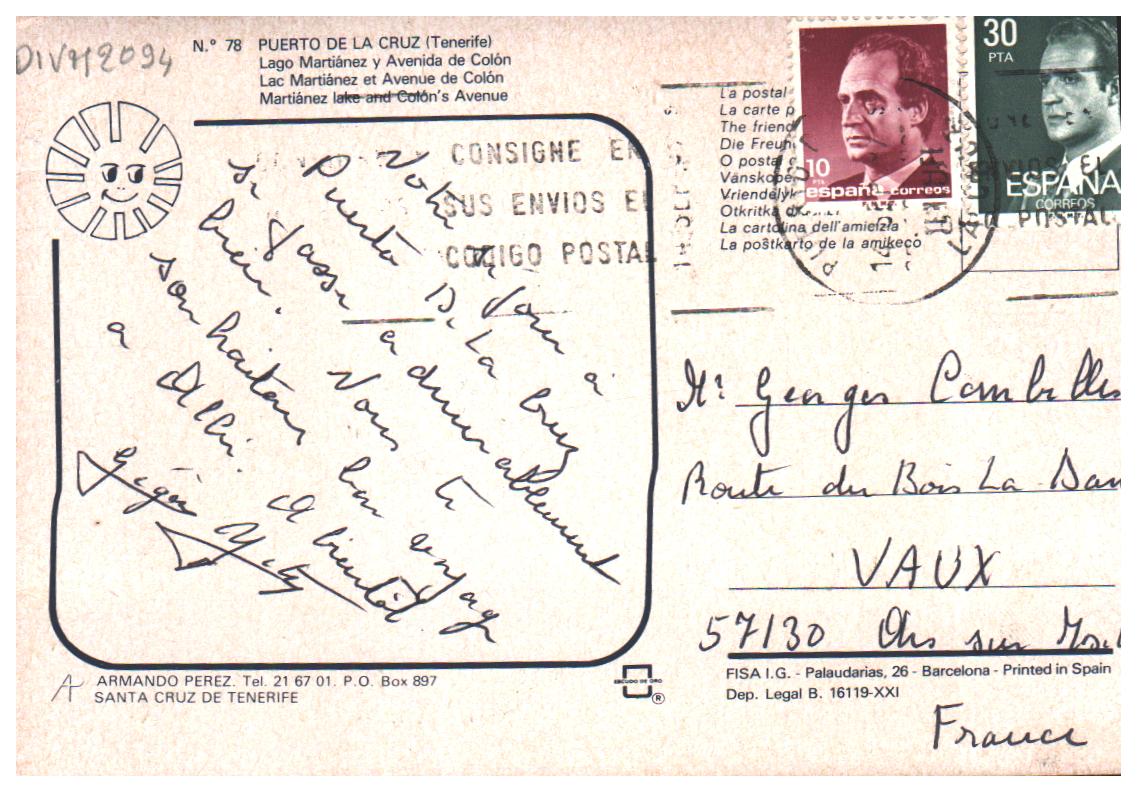 DIVM2094
N.º 78 PUERTO DE LA CRUZ (Tenerife)
Lago Martiánez y Avenida de Colón
Lac Martiánez et Avenue de Colón
Martiánez lake and Colón's Avenue
Votre
Vous a
Puerto D. La Cruz
si passe admirablement
bien. Vous
souhaitant bon voyage
a Albi. A bientôt
CONSIGNE EN
SUS ENVIOS EL
CODIGO POSTAL
La postal
La carte p
The friend
Die Freun
O postal
Vänskope
Vriendelyk
Otkritka
La cartolina dell'amicizia
La poŝtkarto de la amikeco
10
PTA
españa correos
30
PTA
ESPAÑA
CORREOS
ENVIOS EL
POSTAL
Mr Georges Combelles
Route du Bois La Dam
VAUX
57130 Ars sur Mos
France
ARMANDO PEREZ. Tel. 21 67 01. P.O. Box 897
SANTA CRUZ DE TENERIFE
ESCUDO DE ORO
®
FISA I.G. - Palaudarias, 26 - Barcelona - Printed in Spain
Dep. Legal B. 16119-XXI